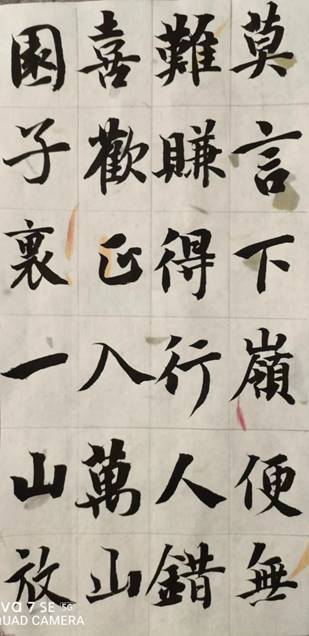 莫言下嶺便無
難賺得行人錯
喜歡正入萬山
圈子裏一山放
va 7 SE 5G
QUAD CAMERA